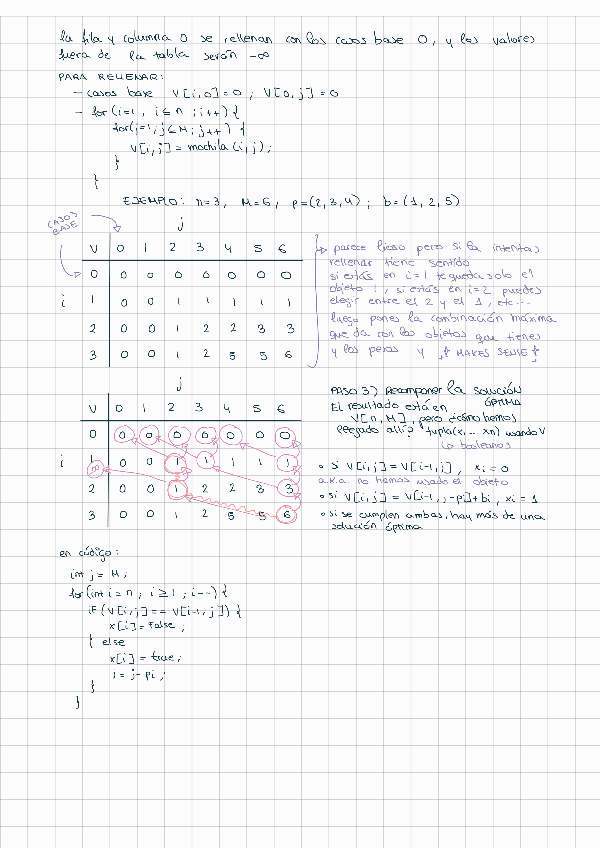 la fila y columna 0 se rellenan con los casos base 0, y los valores
fuera de la tabla serán -∞
PARA RELLENAR:
- casos base V[i,0]=0 ; V[0,j]=0
- for(i=1, i≤n ; i++) {
for(j=1, j≤M; j++) {
V[i,j] = mochila (i,j);
}
}
EJEMPLO: n=3, M=6, p=(2,3,4) ; b=(1,2,5)
CASOS
BASE
j
V 0 1 2 3 4 5 6
0 0 0 0 0 0 0 0
i 1 0 0 1 1 1 1 1
2 0 0 1 2 2 3 3
3 0 0 1 2 5 5 6
parece lioso pero si la intentas
rellenar tiene sentido
si estás en i=1 te queda solo el
objeto 1, si estás en i=2 puedes
elegir entre el 2 y el 1, etc...
luego pones la combinación máxima
que da con los objetos que tienes
y los pesos y ¡¡ MAKES SENSE !!
j
V 0 1 2 3 4 5 6
0 0 0 0 0 0 0 0
i 1 0 0 1 1 1 1 1
2 0 0 1 2 2 3 3
3 0 0 1 2 5 5 6
PASO 3) Recomponer la solución
ÓPTIMA
El resultado está en
V[n,M], pero ¿cómo hemos
llegado allí? tupla(x1 ... xn) usando V
↳ booleanos
• si V[i,j] = V[i-1,j] , xi = 0
a.k.a. no hemos usado el objeto
• si V[i,j] = V[i-1,j-pi]+bi , xi = 1
• si se cumplen ambas, hay más de una
solución óptima
en código:
int j = M ;
for(int i=n ; i≥1 ; i--) {
if (V[i,j] == V[i-1,j]) {
x[i]=false ;
} else
x[i] = true ;
j = j-pi ;
}
}